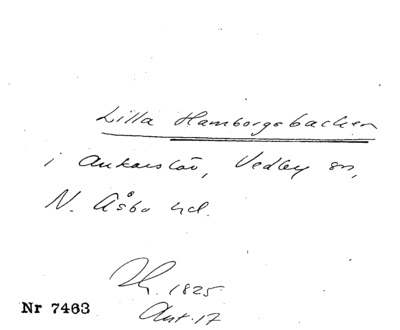 Lilla Hamborgsbacken
i Ankarslöv, Vedby sn,
N. Åsbo hd.
1825
Ant. 17
Nr 7463